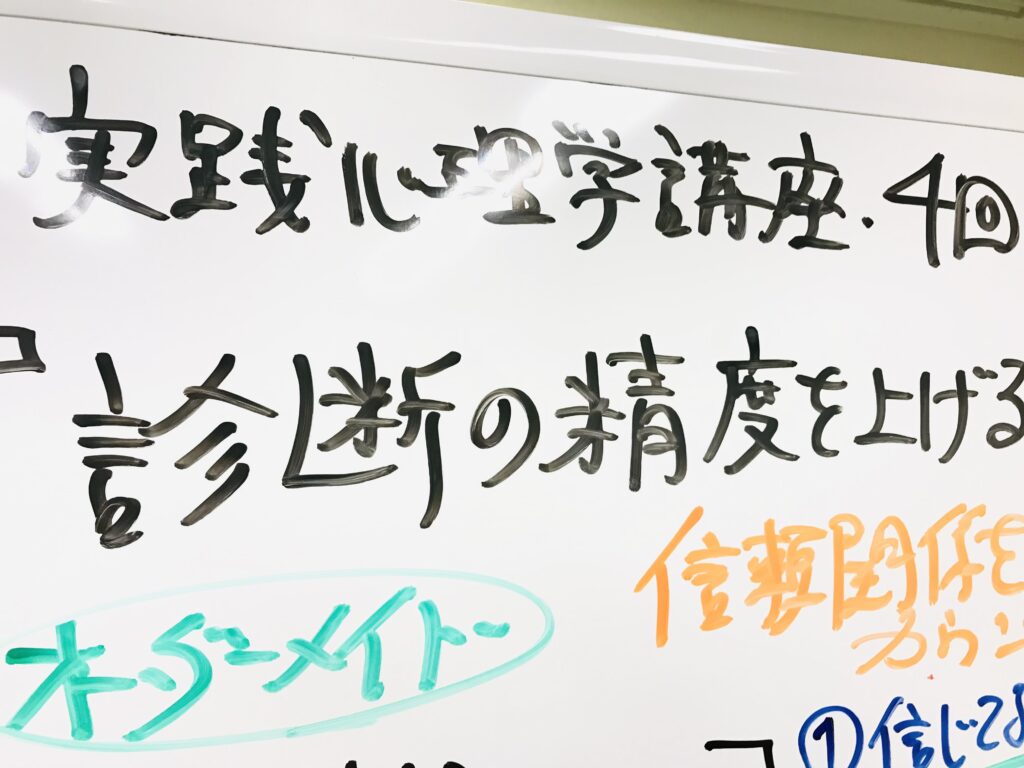 実践心理学講座.4回
『診断の精度を上げる
信頼関係を
カウン
オーダーメイトー
①信じてよ